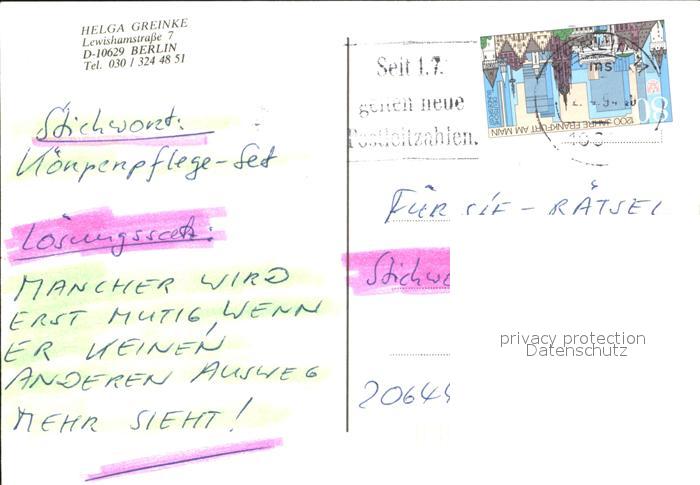 HELGA GREINKE
Lewishamstraße 7
D-10629 BERLIN
Tel. 030 / 324 48 51
Stichwort:
Körperpflege-Set
Lösungssatz:
MANCHER WIRD
ERST MUTIG, WENN
ER KEINEN
ANDEREN AUSWEG
MEHR SIEHT!
Seit 1.7.
gelten neue
Postleitzahlen.
80
1200 JAHRE FRANKFURT AM MAIN
FÜR SIE - RÄTSEL
Stichwo
20644
privacy protection
Datenschutz